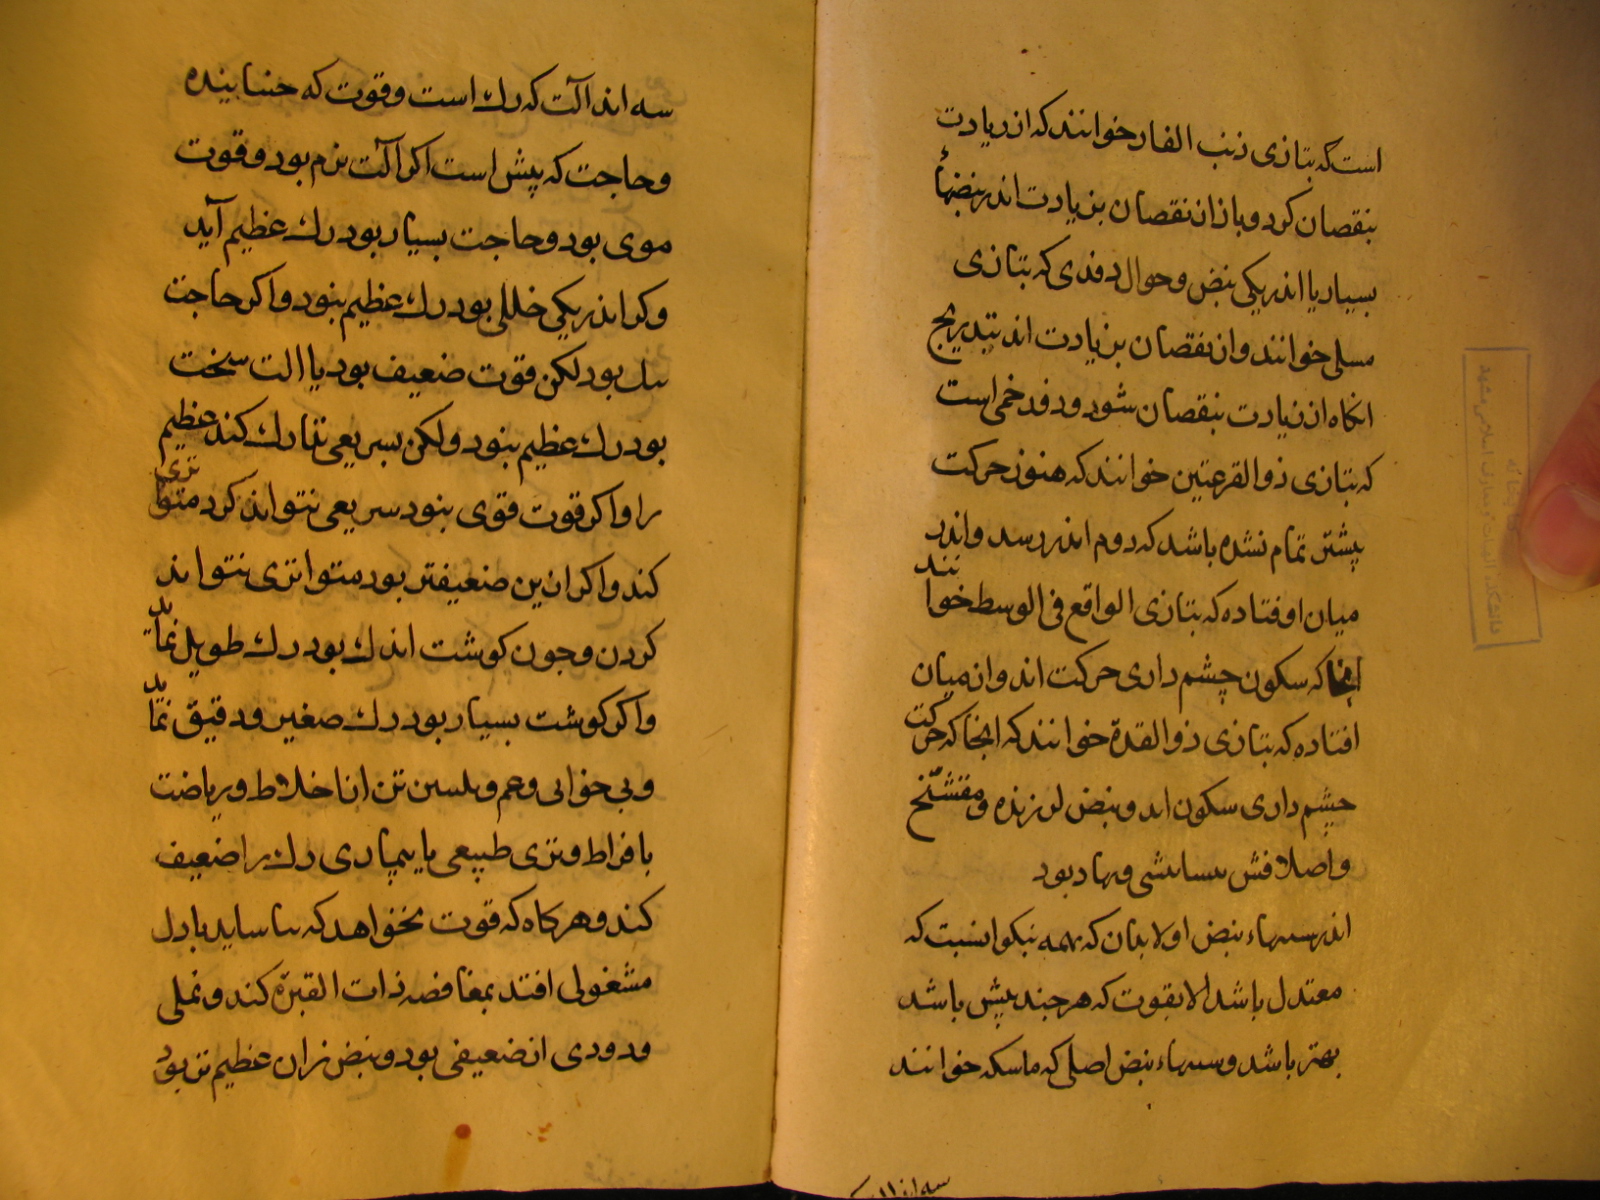 است که بتازی ذنب الفار خوانند که از زیادت
بنقصان کرد و باز از نقصان بزیادت اندر نبضهاء
بسیار یا اندر یکی نبض و حوال دفدی که بتازی
مسلی خوانند و از نقصان بزیادت اند بتدریج
انکاه از زیادت بنقصان شود و دفدخمی است
که بتازی ذو القرعتین خوانند که هنوز حرکت
پیشتر تمام نشده باشد که دوم اندر رسد و اندر
میان اوفتاده که بتازی الواقع فی الوسط خوانند
انجا که سکون چشم داری حرکت اند و ان میان
افتاده که بتازی ذو القدة خوانند که انجا که حرکت
چشم داری سکون اید و نبض لرزنده و متشنج
و اصلا فش بود
اندر سببهاء نبض اولا بدان که همه نیکو انست که
معتدل باشد الا بقوت که هر چند بیش باشد
بهتر باشد و سببهاء نبض اصلی که ماسکه خوانند
سه اند آلت که رک است و قوت که جنبانیده
و حاجت که پیش است اکر آلت نرم بود و قوت
موی بود و حاجت بسیار بود رک عظیم آید
و کر اندر یکی خللی بود رک عظیم بنود و اکر حاجت
بود لکن قوت ضعیف بود یا الت سخت
بود رک عظیم بنود و لکن بسریعی تدارک کند عظیم
را و اکر قوت قوی بنود سریعی نتواند کرد متواتری
کند و اکر ازین ضعیفتر بود متواتری نتواند
کردن و چون کوشت اندک بود رک طویل نماید
و اکر کوشت بسیار بود رک صغیر و دقیق نماید
و بی خوابی و غم و تن از اخلاط و ریاضت
بافراط و تری طبیعی یا بیماری رک را ضعیف
کند و هر کاه که قوت بخواهد که بیاساید یا دل
مشغولی افتد بمغافصه ذات الفترة کند و نملی
و دودی از ضعیفی بود و نبض نران عظیم تر بود